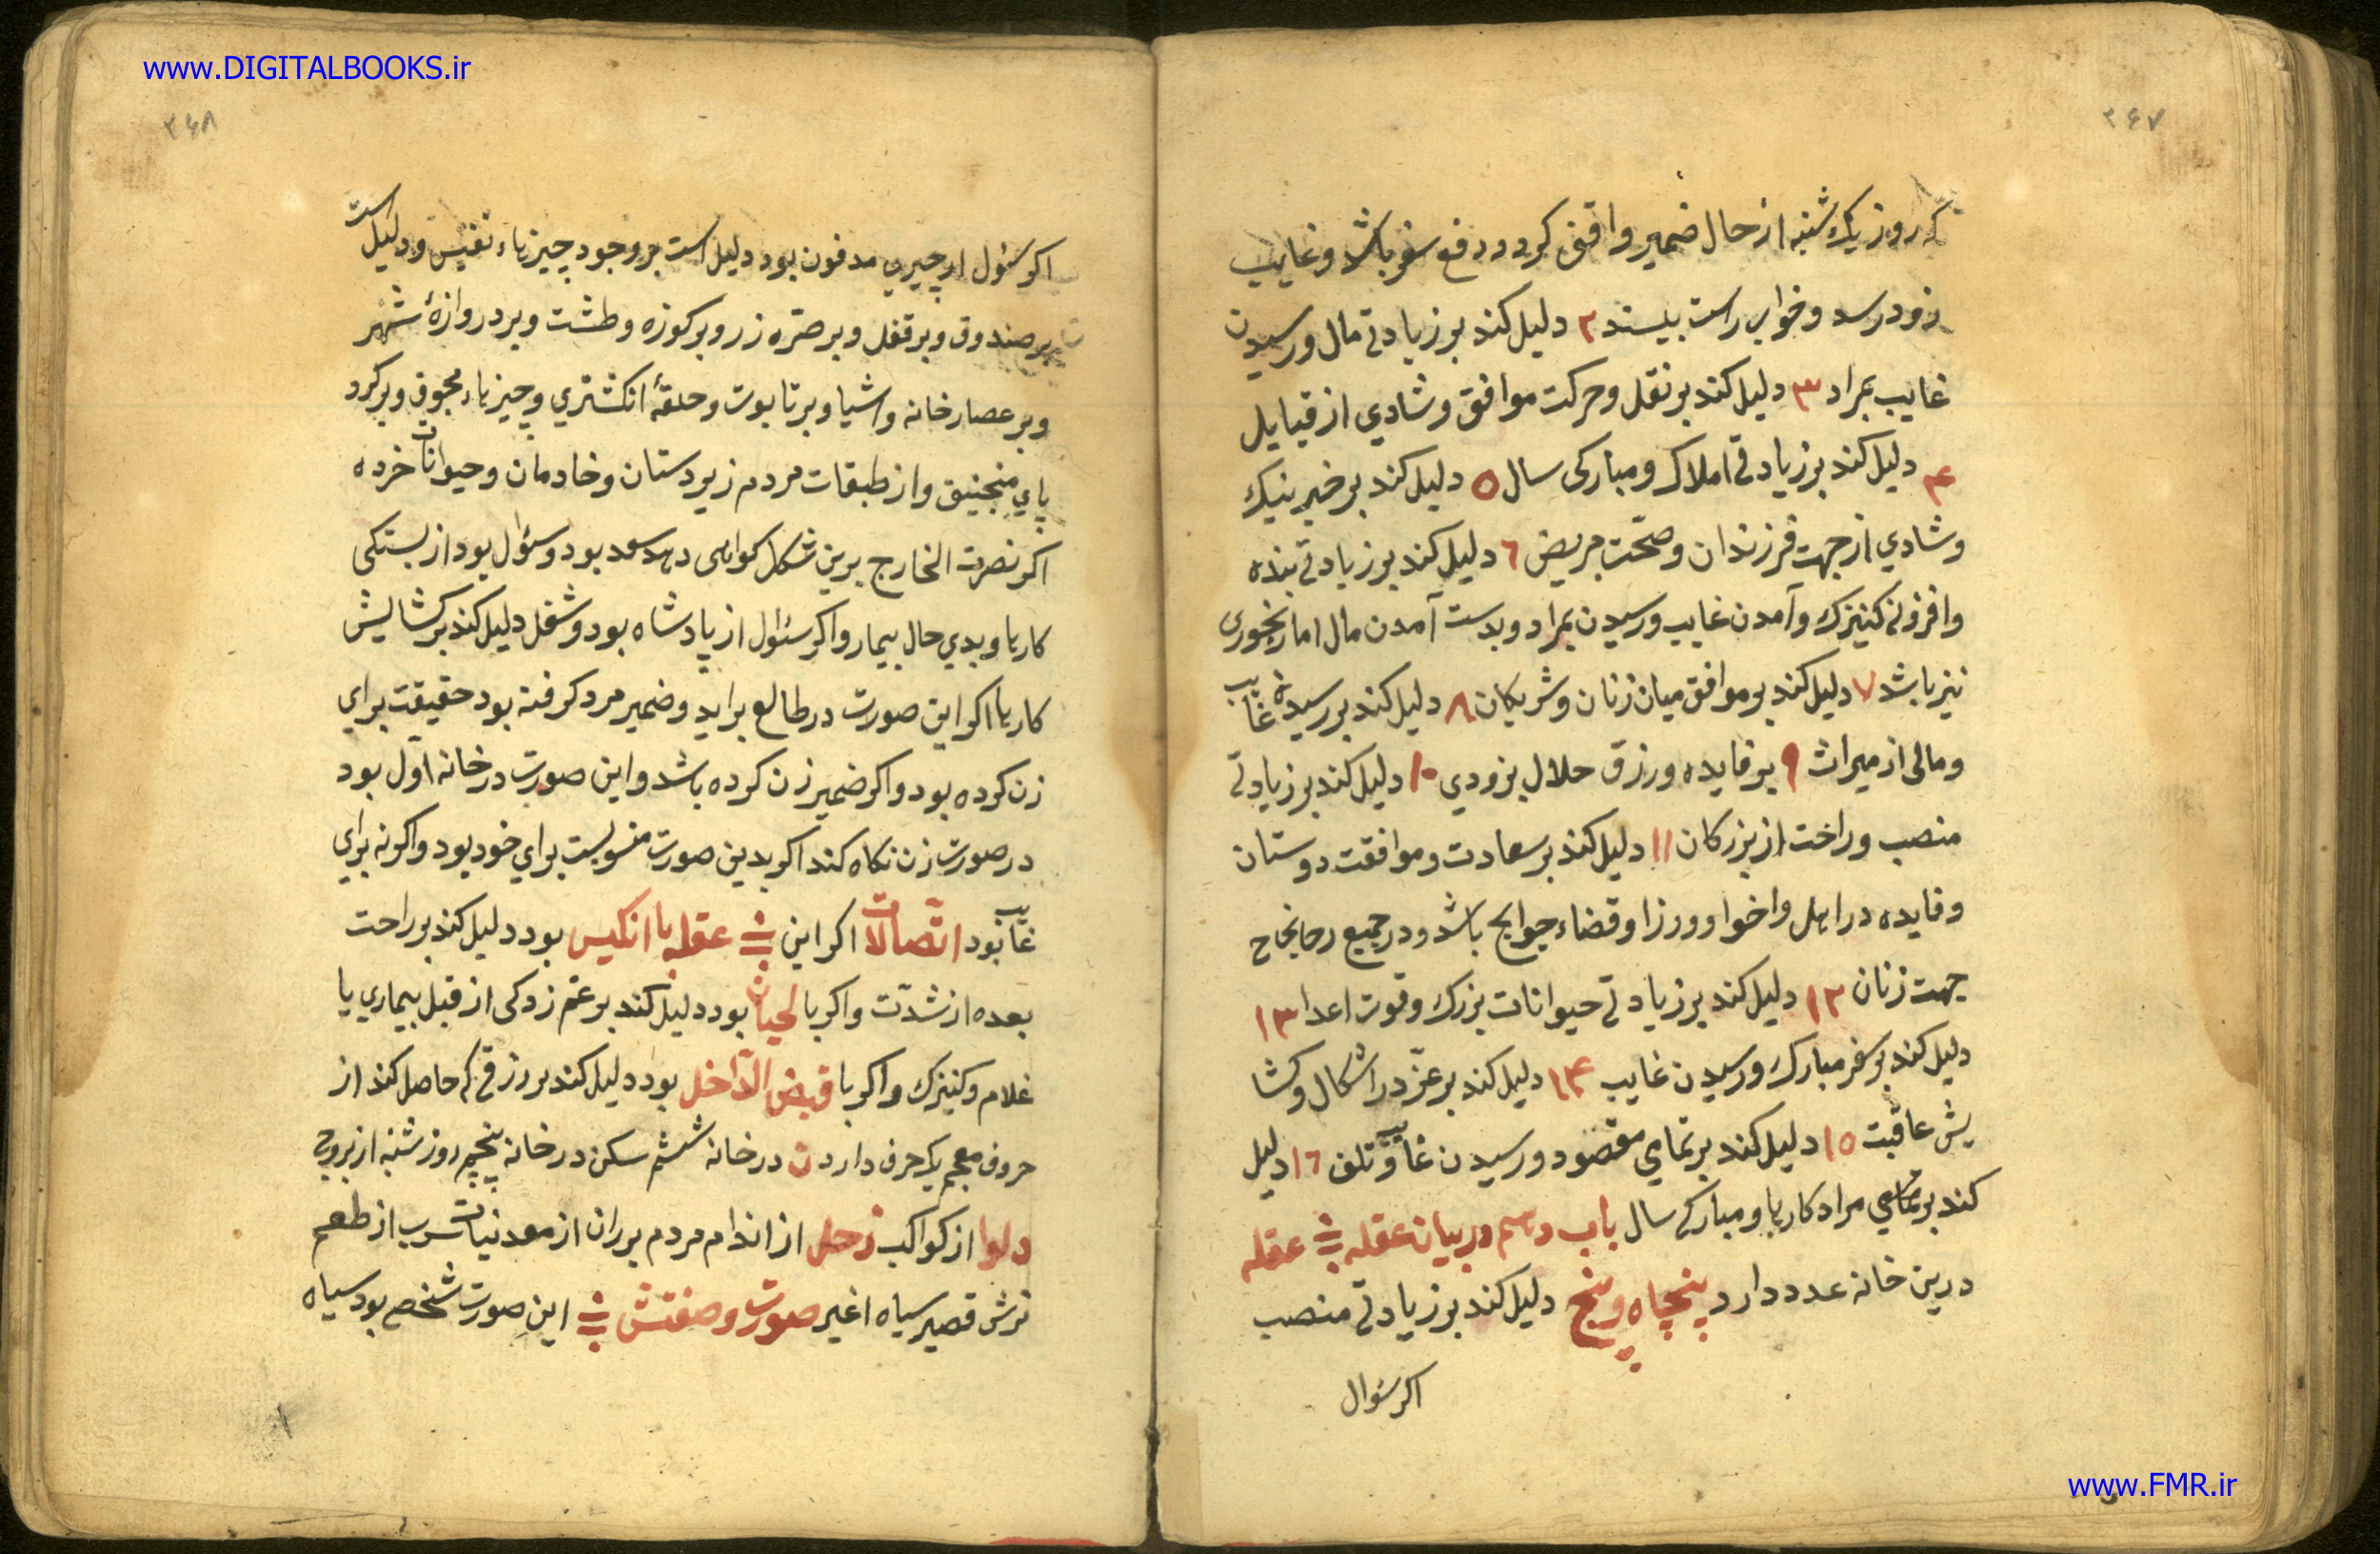 www.DIGITALBOOKS.ir
۳۶۷
که روز یکشنبه از حال ضمیر واقف کردد در فع سفر باشد و غایب
زود رسد و خواب راست بیند ۲ دلیل کند بر زیادتی مال و رسیدن
غایب بمراد ۳ دلیل کند بر نقل و حرکت موافق و شادی از قبایل
۴ دلیل کند بر زیادتی املاک و مبارکی سال ۵ دلیل کند بر خبر نیک
و شادی از جهت فرزندان و صحّت مریض ٦ دلیل کند بر زیادتی بنده
و افزونی کنیزک و آمدن غایب و رسیدن بمراد و بدست آمدن مال اما رنجوری
نیز باشد ۷ دلیل کند بر موافق میان زنان و شریکان ۸ دلیل کند بر رسیدن غایب
و مالی از میراث ۹ بر فایده و رزق حلال بزودی ۱۰ دلیل کند بر زیادتی
منصب و راحت از بزرکان ۱۱ دلیل کند بر سعادت و موافقت دوستان
و فایده در اهل و اخوا و وزرا و قضاء حوایج باشد و در جمیع
جهت زنان ۱۲ دلیل کند بر زیادتی حیوانات بزرک و قوت اعدا ۱۳
دلیل کند بر سفر مبارک و رسیدن غایب ۱۴ دلیل کند بر عزّ در اشکال و کشا
یش عاقبت ۱۵ دلیل کند بر تمامی مقصود و رسیدن غایب و تلف ۱٦ دلیل
کند بر تمامی مراد کارها و مبارکی سال باب دهم در بیان عقله عقله
درین خانه عدد دارد پنجاه و پنج دلیل کند بر زیادتی منصب
اکر سئوال
۳۶۸
اکر سئول از چیزی مدفون بود دلیل است بر وجود چیزهاء نفیس و دلیل است
بر صندوق و بر قفل و بر صرّه زر و بر کوزه و طشت و بر دروازهٔ شهر
و بر عصارخانه و اشیا و بر تابوت و حلقهٔ انکشتری و چیزهاء مجوف و بر کرد
پای منجنیق و از طبقات مردم زیردستان و خادمان و حیوانات خرده
اکر نصرت الخارج برین شکل کواهی دهد سعد بود و سئوال بود از بستکی
کارها و بدی حال بیمار و اکر سئوال از پادشاه بود و شغل دلیل کند بر کشایش
کارها اکر این صورت در طالع براید و ضمیر مرد کرفته بود حقیقت برای
زن کرده بود و اکر ضمیر زن کرده باشد و این صورت در خانه اوّل بود
در صورت زن نکاه کند اکر بدین صورت منسوبست برای خود بود و اکر نه برای
غایب بود اتّصالات اکر این عقله با انکیس بود دلیل کند بر راحت
بعده از شدّت و اکر با لحیان بود دلیل کند بر غم زدکی از قبل بیماری یا
غلام و کنیزک و اکر با قبض الدّاخل بود دلیل کند بر رزقی که حاصل کند از
حروف معجم یک حرف دارد ن در خانه ششم سکن در خانه پنجم روز شنبه از بروج
دلو از کواکب زحل از اندام مردم بر ران از معدنیات سرب از طعم
ترش قصیر سیاه اغبر صورت و صفتش این صورت شخص بود سیاه
www.FMR.ir